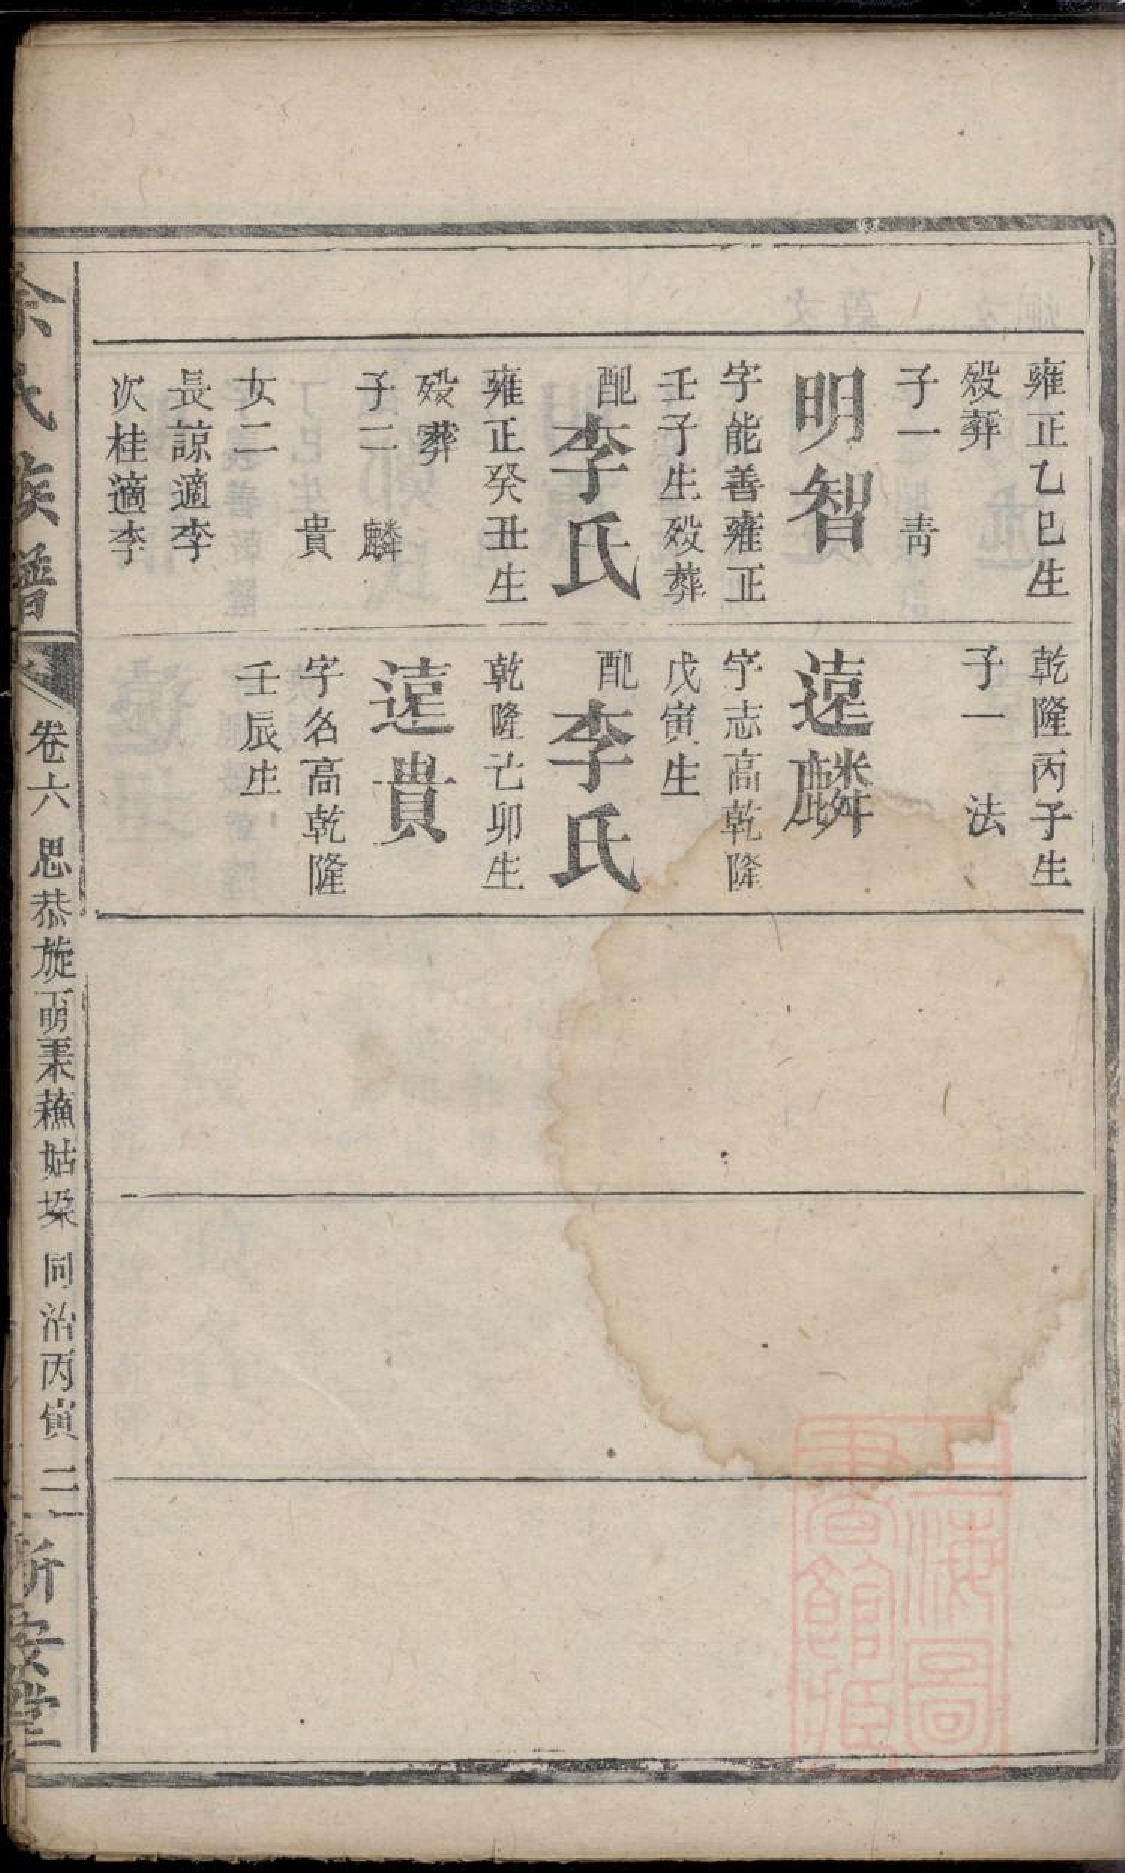 雍正乙巳生
歿葬
子一 靑
明智
字能善雍正
壬子生歿葬
配李氏
雍正癸丑生
歿葬
子二 麟
貴
女二
長諒適李
次桂適李
乾隆丙子生
子一 法
遠麟
字志高乾隆
戊寅生
配李氏
乾隆己卯生
遠貴
字名高乾隆
壬辰生
氏族譜
卷六 思恭旋
姑 同治丙寅 二
新安堂
上海圖
書館藏